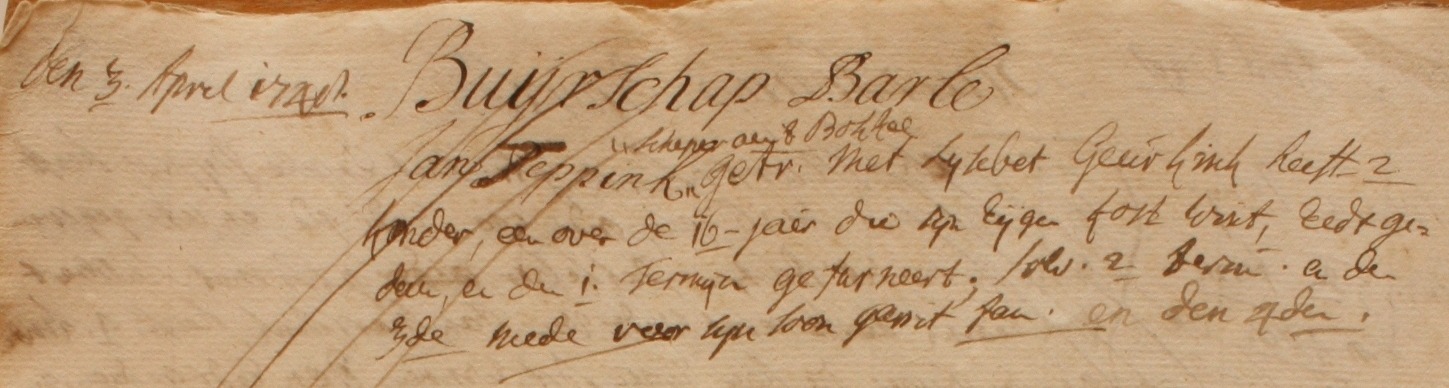 den 3. April 1748. Buijrschap Barle
scheper aen't Bohtel
Jan Teppink, getr. met Lijsbet Geurkink heeft 2
kinder, een over de 16 jaer die sijn Eijgen kost wint, Eedt ge-
daen, en den 1. Termijn gefurneert; solv. 2 termi. en den
3de mede voor sijn soon garrit Jan. en den 4den.